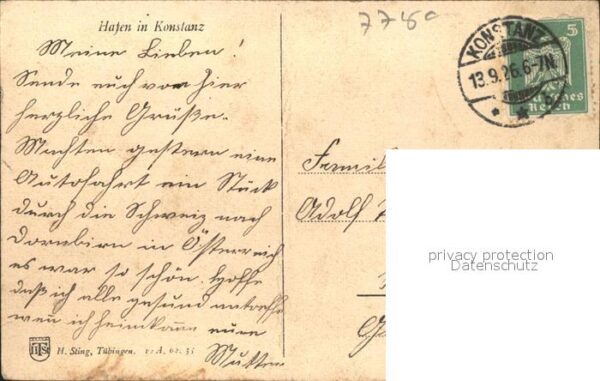 Hafen in Konstanz
7780
KONSTANZ
13.9.26.6-7N
5
Deutsches
Reich
Meine Lieben!
Sende euch von hier
herzliche Grüße.
Machten gestern eine
Autofahrt ein Stück
durch die Schweiz nach
Dornbirn in Österreich
es war so schön. Hoffe
daß ich alle gesund antreffe
wenn ich heimkomme eure
Mutter
Famil
Adolf
privacy protection
Datenschutz
H. Sting, Tübingen.